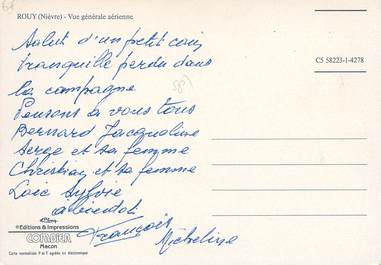 ROUY (Nièvre) - Vue générale aérienne
Salut d'un petit coin
tranquille perdu dans
la campagne
Pensons à vous tous
Bernard Jacqueline
Serge et sa femme
Christian et sa femme
Loïc Sylvie
à bientôt
François
Micheline
CS 58223-1-4278
58
Editions & Impressions
COMBIER
Macon
Carte normalisée P et T agréée en électronique